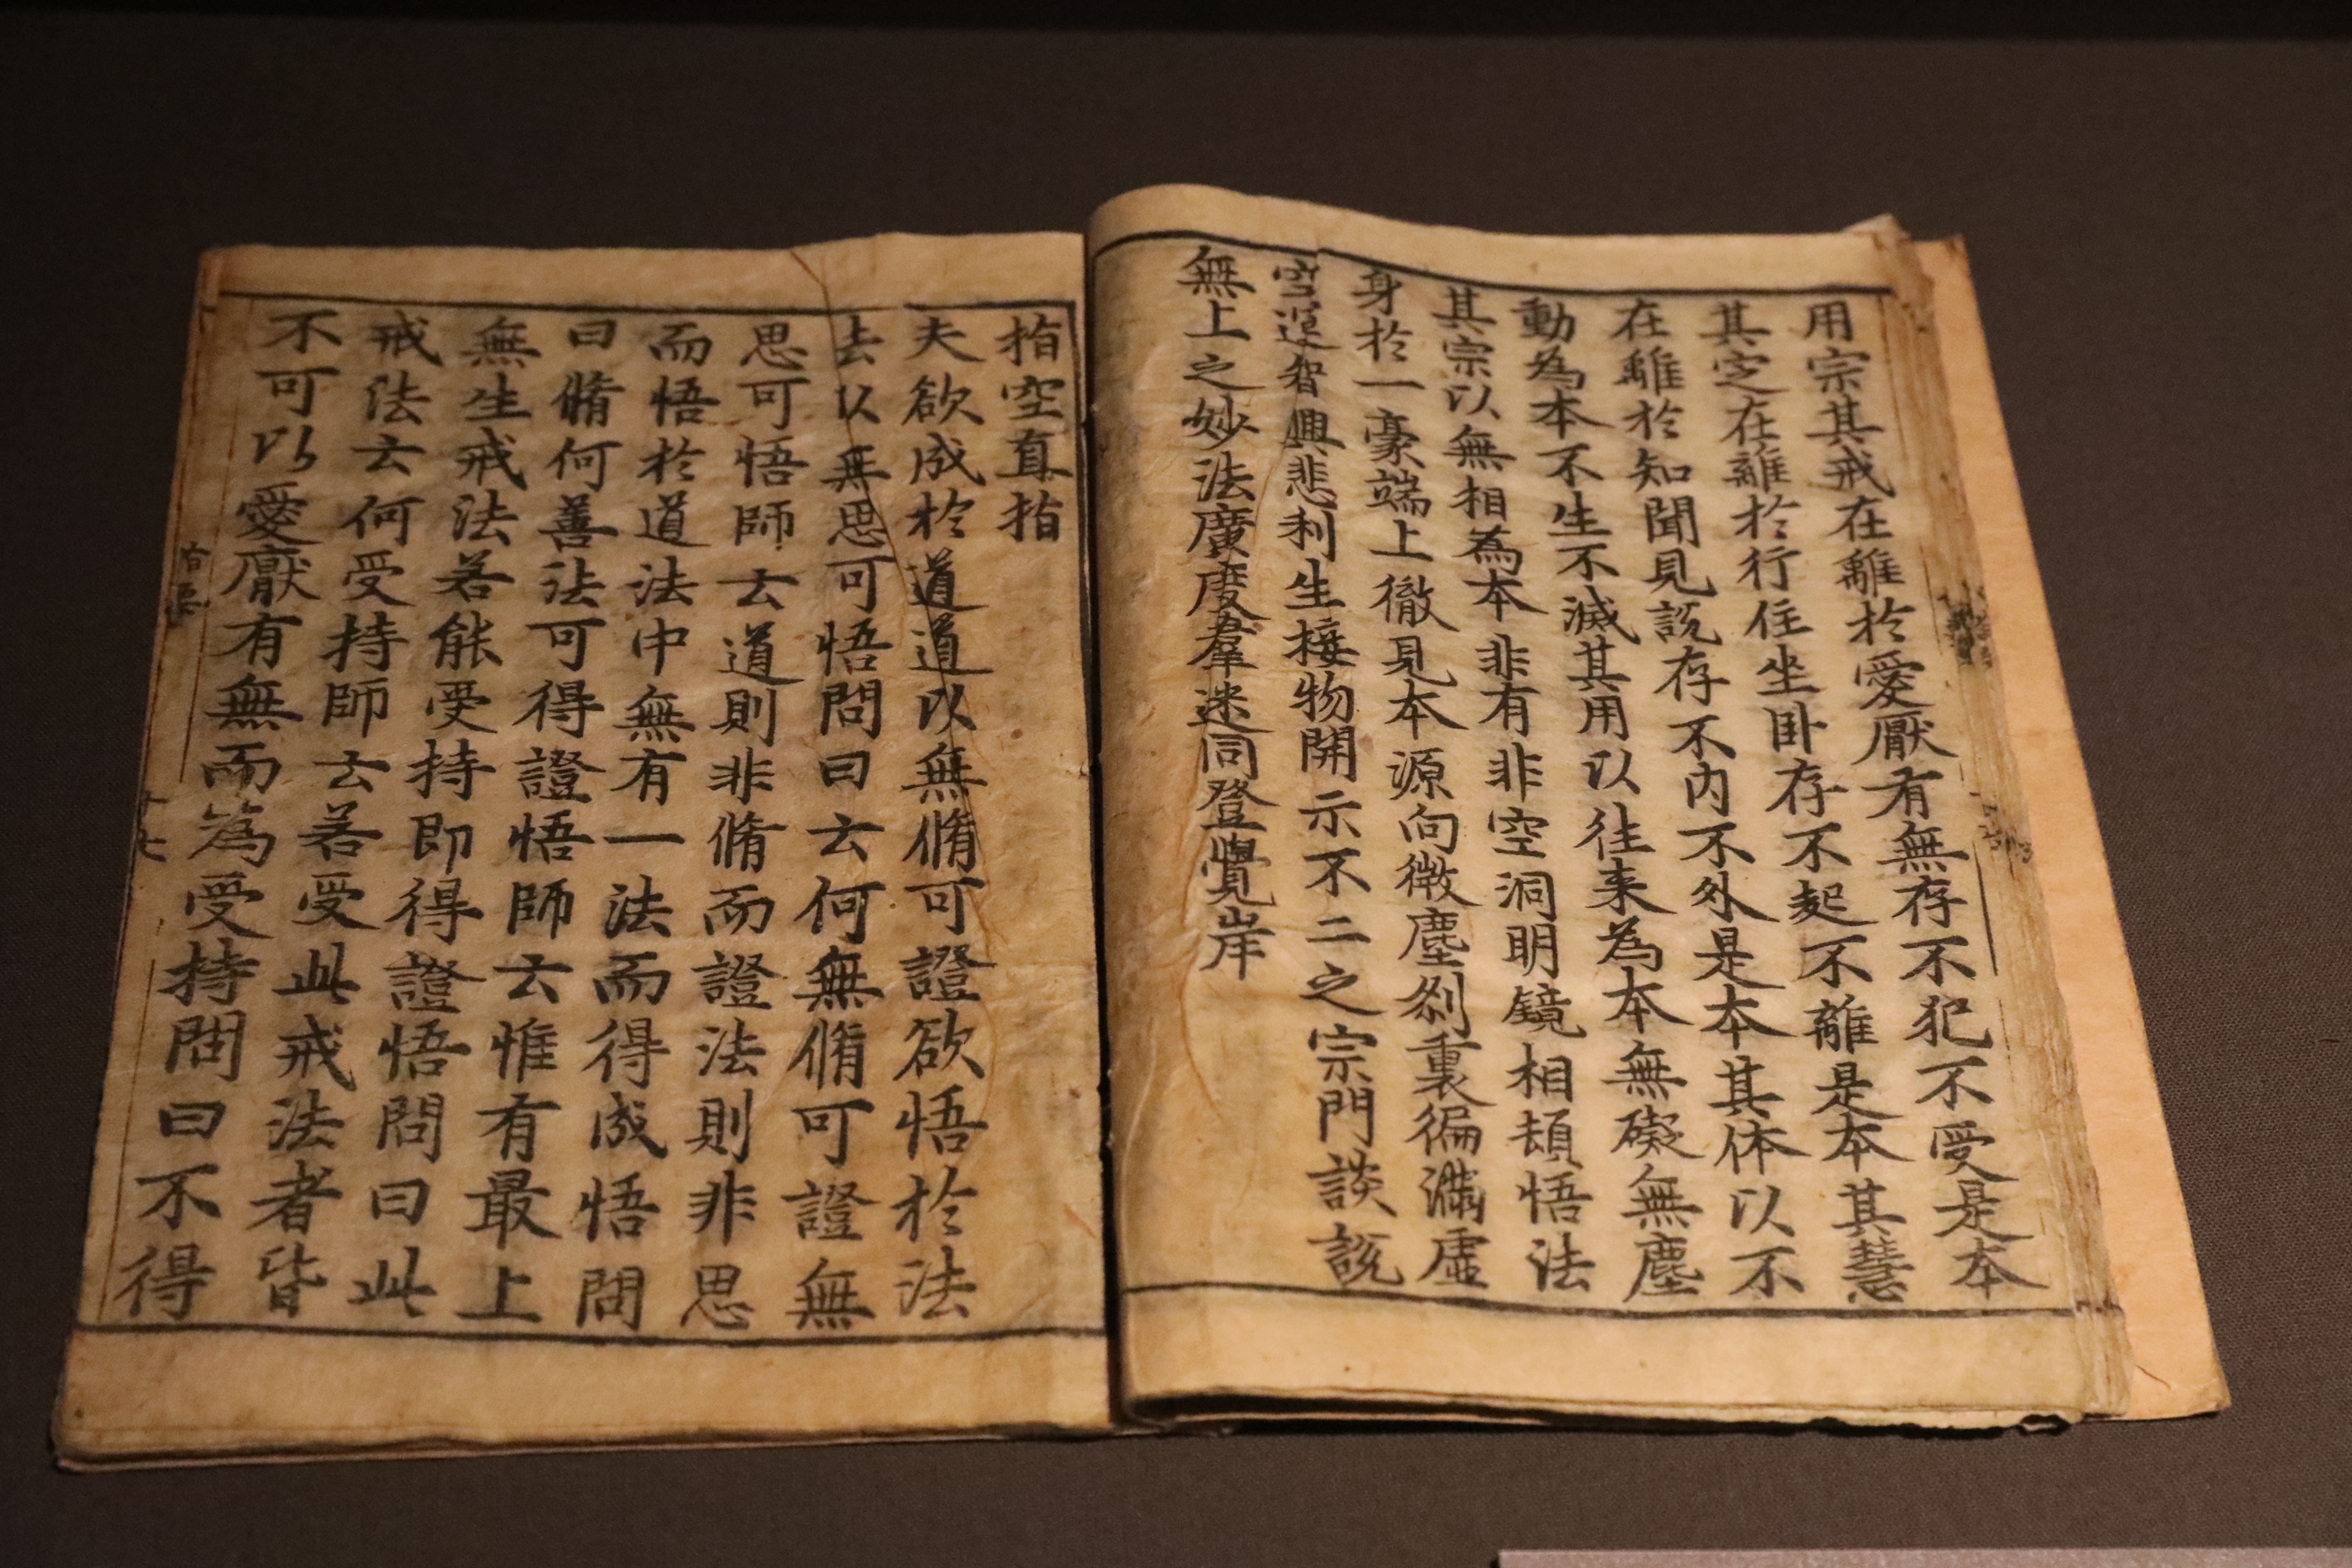 用宗其戒在離於愛厭有無存不犯不受是本
其定在離於行住坐卧存不起不離是本其慧
在離於知聞見說存不内不外是本其体以不
動為本不生不滅其用以往来為本無礙無塵
其宗以無相為本非有非空洞明鏡相頓悟法
身於一豪端上徹見本源向微塵刹裏徧滿虛
空運智興悲利生接物開示不二之宗門談說
無上之妙法廣度羣迷同登覺岸
指空直指
夫欲成於道道以無脩可證欲悟於法
法以無思可悟問曰云何無脩可證無
思可悟師云道則非脩而證法則非思
而悟於道法中無有一法而得成悟問
曰脩何善法可得證悟師云惟有最上
無生戒法若能受持即得證悟問曰此
戒法云何受持師云若受此戒法者皆
不可以愛厭有無而為受持問曰不得
指要
十七